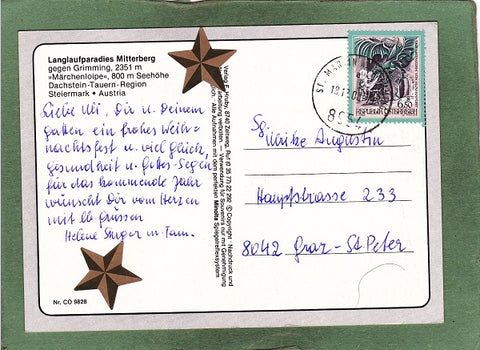 Langlaufparadies Mitterberg
gegen Grimming, 2351 m
»Märchenloipe«, 800 m Seehöhe
Dachstein-Tauern-Region
Steiermark • Austria
Liebe Uli, Dir u. Deinem
Gatten ein frohes Weih-
nachtsfest u. viel Glück,
gesundheit u. Gottes-Segen
für das kommende Jahr
wünscht Dir vom Herzen
mit lb. Grüssen
Helene u. Fam.
Nr. CO 9828
Verlag 8740 Zeltweg, Ruf (0 35 77) 22 792 © Copyright · Nachdruck und
Verwendung für Souvenirs nur mit Genehmigung
Alle Aufnahmen mit dem perfekten Minolta Spiegelreflexsystem
REPUBLIK ÖSTERREICH
6.50
ST. MARTIN
Ulrike Augustin
Hauptstrasse 233
8042 Graz - St. Peter